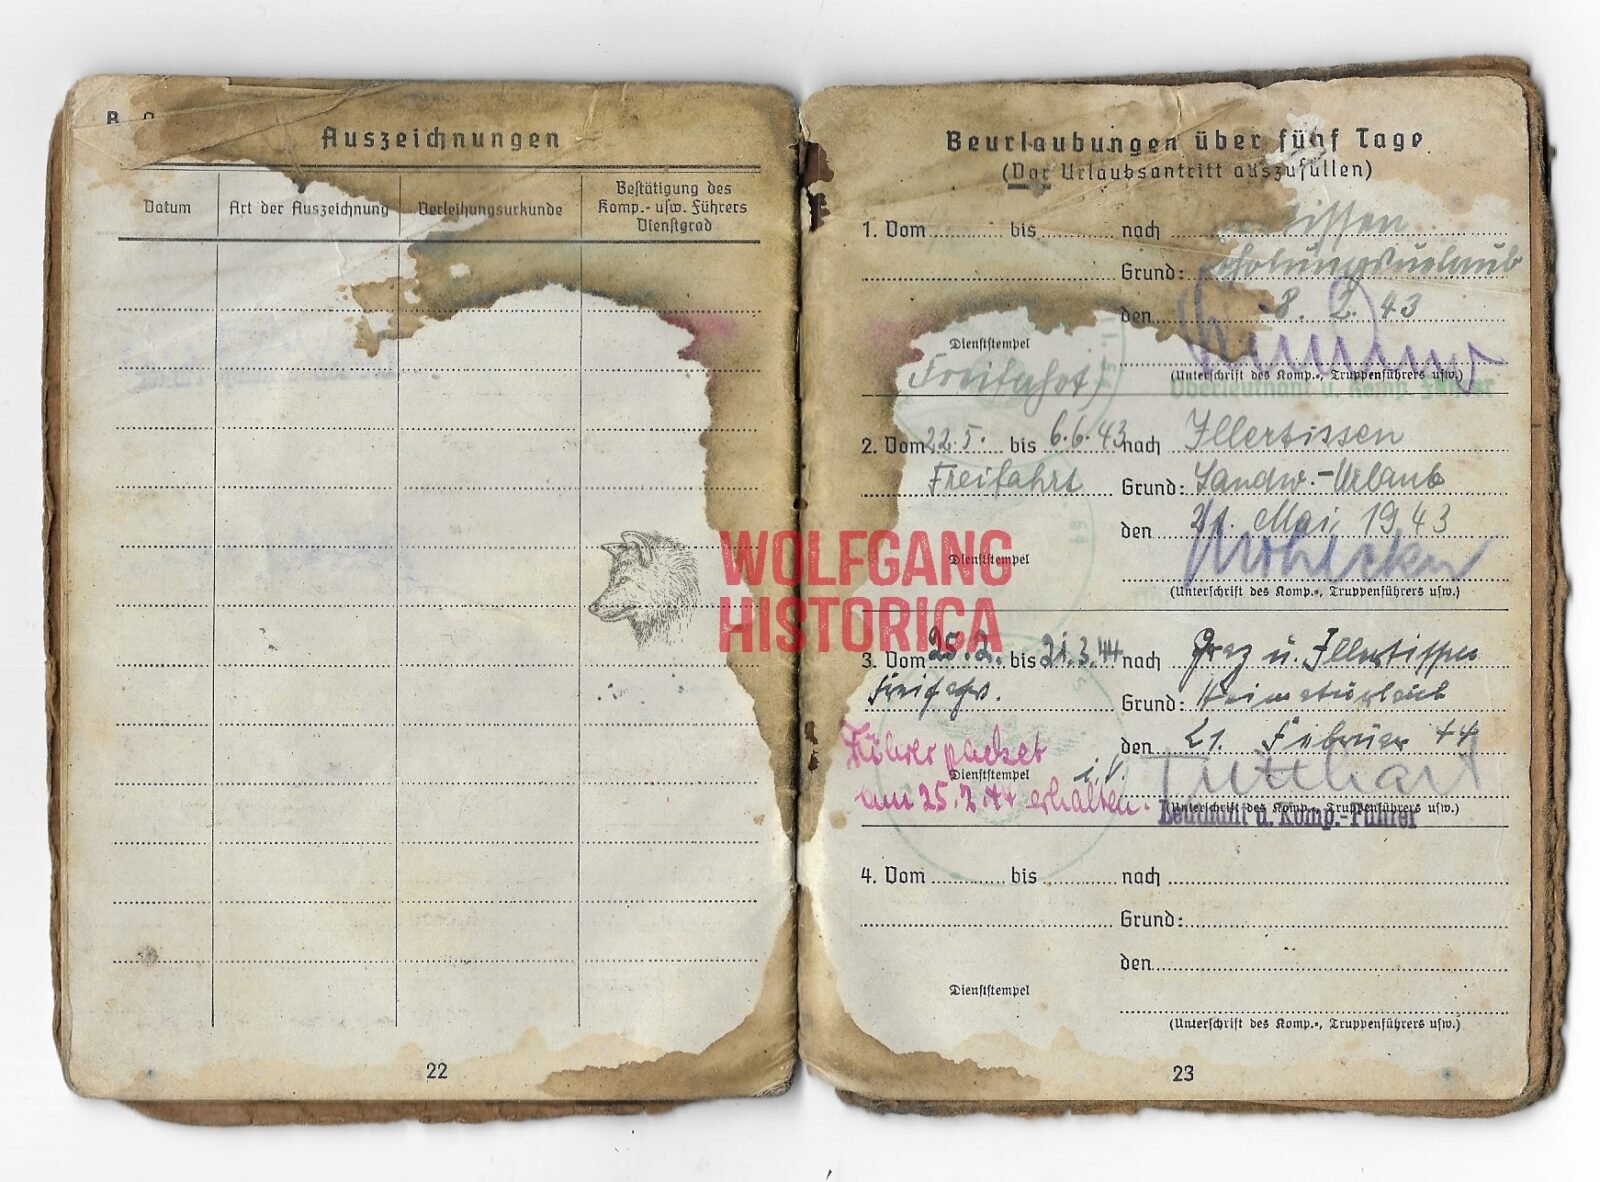 Auszeichnungen
Datum
Art der Auszeichnung
Verleihungsurkunde
Bestätigung des
Komp.- usw. Führers
Dienstgrad
22
Beurlaubungen über fünf Tage
(Vor Urlaubsantritt auszufüllen)
1. Vom bis nach
Grund: Erholungsurlaub
den 8. 2. 43
Dienststempel
Freifahrt
(Unterschrift des Komp.-, Truppenführers usw.)
Oberleutnant u. Komp. Führer
2. Vom 22.5. bis 6.6.43 nach Illertissen
Freifahrt Grund: Landw.-Urlaub
den 21. Mai 1943
Dienststempel
(Unterschrift des Komp.-, Truppenführers usw.)
3. Vom 25.2. bis 21.3.44 nach Graz u. Illertissen
Freifahrt. Grund: Heimaturlaub
den 21. Februar 44
Führerpacket
Dienststempel i.V.
am 25.2.44 erhalten.
(Unterschrift des Komp.-, Truppenführers usw.)
Leutnant u. Komp.-Führer
4. Vom bis nach
Grund:
den
Dienststempel
(Unterschrift des Komp.-, Truppenführers usw.)
23
WOLFGANG
HISTORICA